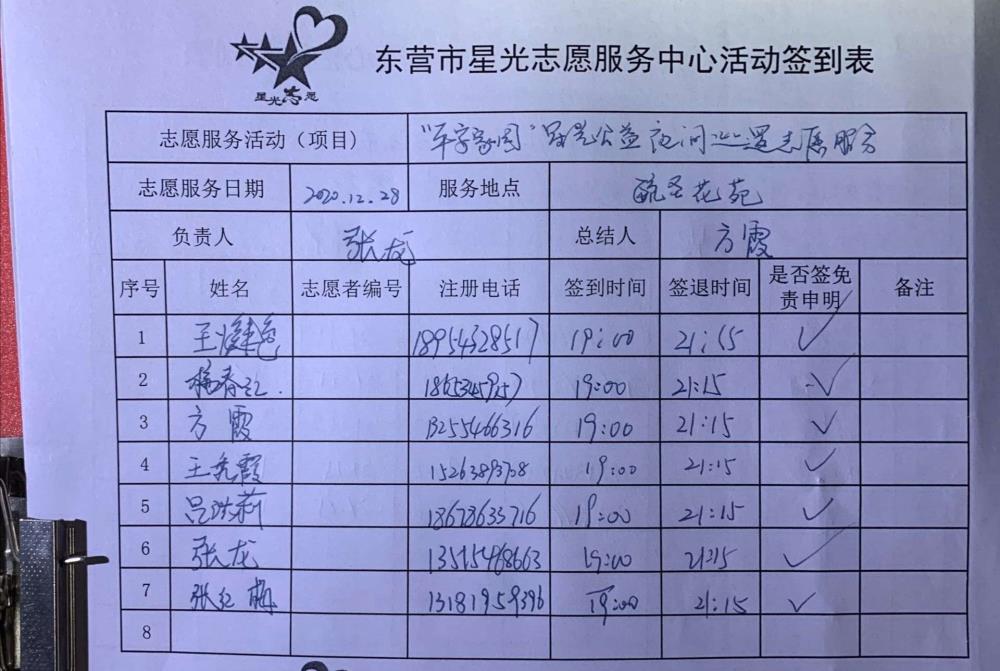 星光志愿
东营市星光志愿服务中心活动签到表
志愿服务活动（项目） "平安家园"星光公益夜间巡逻志愿服务
志愿服务日期 2020.12.28 服务地点 花苑
负责人 张龙 总结人 方霞
序号 姓名 志愿者编号 注册电话 签到时间 签退时间 是否签免责申明 备注
1 王 18954328517 19:00 21:15 ✓
2 杨春红. 1865345957 19:00 21:15 ✓
3 方霞 13255466316 19:00 21:15 ✓
4 王秀霞 15263893708 19:00 21:15 ✓
5 吕洪莉 18678633716 19:00 21:15 ✓
6 张龙 13515468663 19:00 21:15 ✓
7 张红梅 13181959396 19:00 21:15 ✓
8